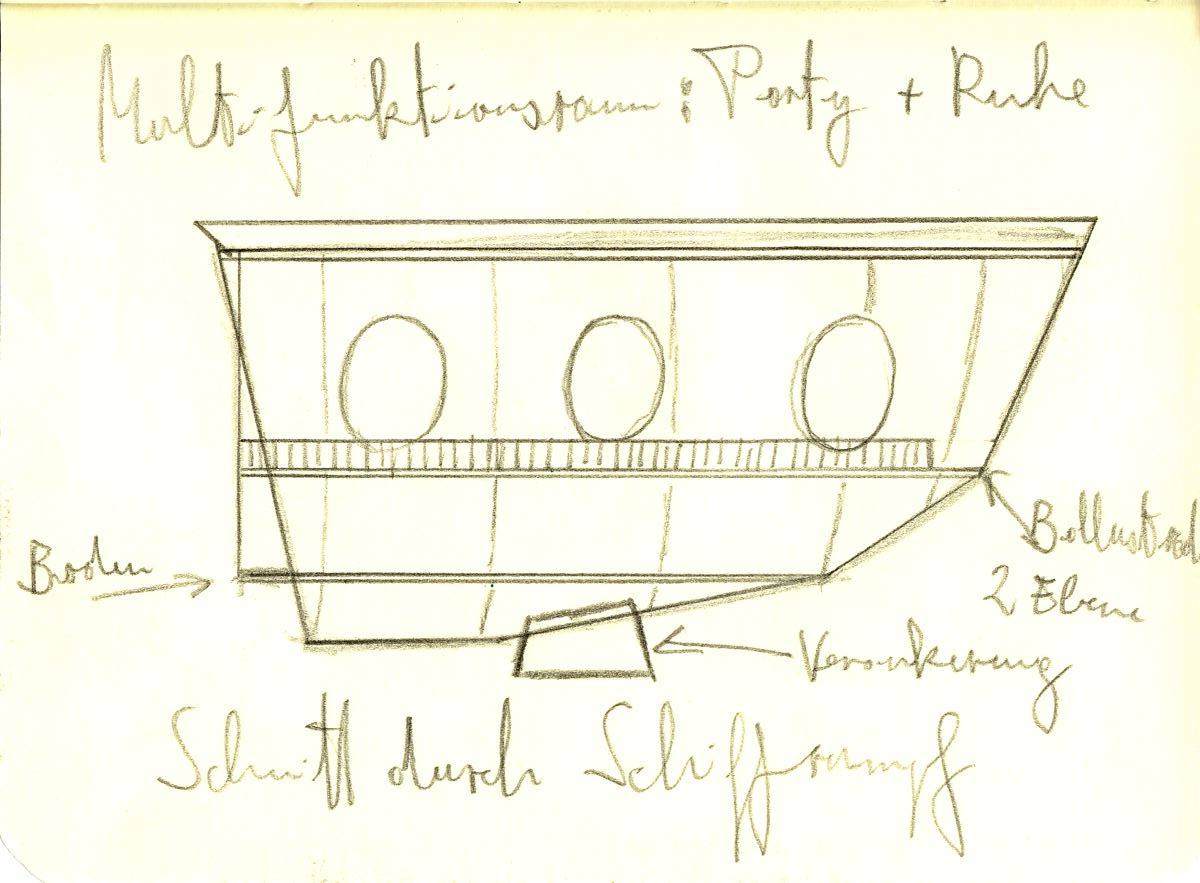 Multifunktionsraum: Party + Ruhe
Boden
Ballustrad
2 Ebene
Verankerung
Schnitt durch Schiffrumpf